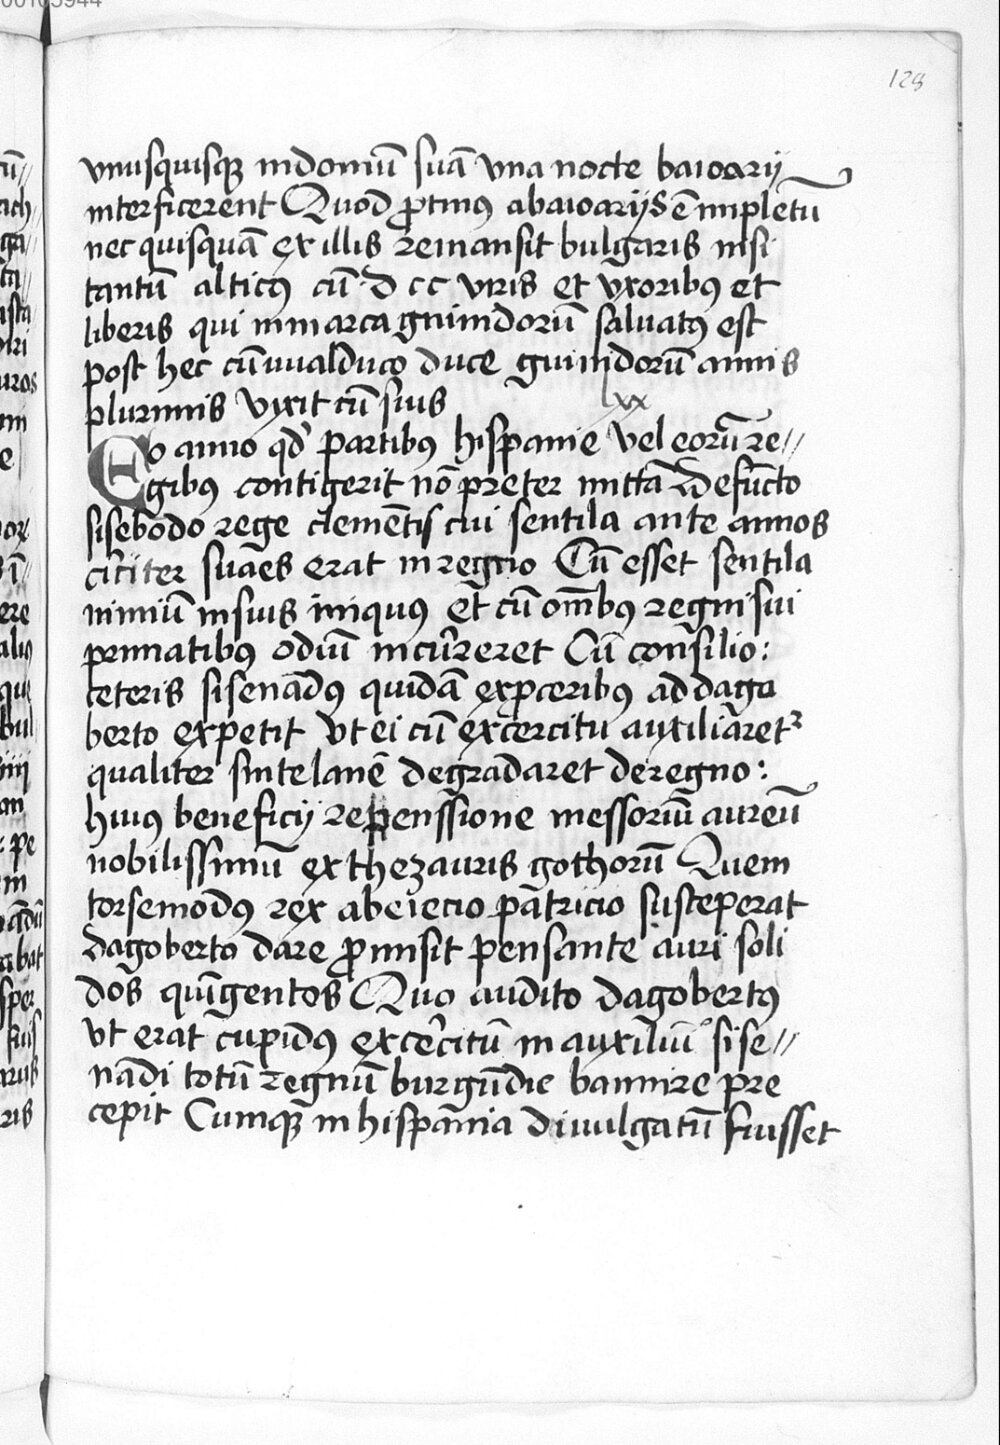 128
vnusquisq̄ indomū suā vna nocte baioarij
interficerent Quod ꝓtinus abaioarijs ē impletū
nec quisquā ex illis remansit bulgaris nisi
tantū alticꝰ cū d c c viris et vxoribꝰ et
liberis qui inmarca guinidorū saluatꝰ est
post hec cū vvalduco duce guinidorū annis
plurimis vyxit cū suis lxx
Eo anno qd̓ partibꝰ hispanie vel eorū re//
gibꝰ contigerit nō preter mittā Defūcto
sisebodo rege clemētis cui sentila ante annos
circiter suās erat in regno Cū esset sentila
nimiū insuis iniquꝰ et cū om̄bꝰ regni sui
primatibꝰ odiū incur̄reret Cū consilio:
ceteris sisenādꝰ quidā exꝓceribꝰ ad dago
berto expetit vt ei cū excercitu auxiliaret᷑
qualiter sintelanē degradaret deregno:
huius beneficij repenssione messoriū aureū
nobilissimū ex thezauris gothorū Quem
torsemodꝰ rex abeiecio patricio susceperat
dagoberto dare ꝓmisit pensante auri soli
dos quīgentos Quo audito dagobertꝰ
vt erat cupidꝰ excercitū in auxiliū sise//
nādi totū regnū burgūdie bannire pre
cepit Cumq̄ in hispania divulgatū fuisset